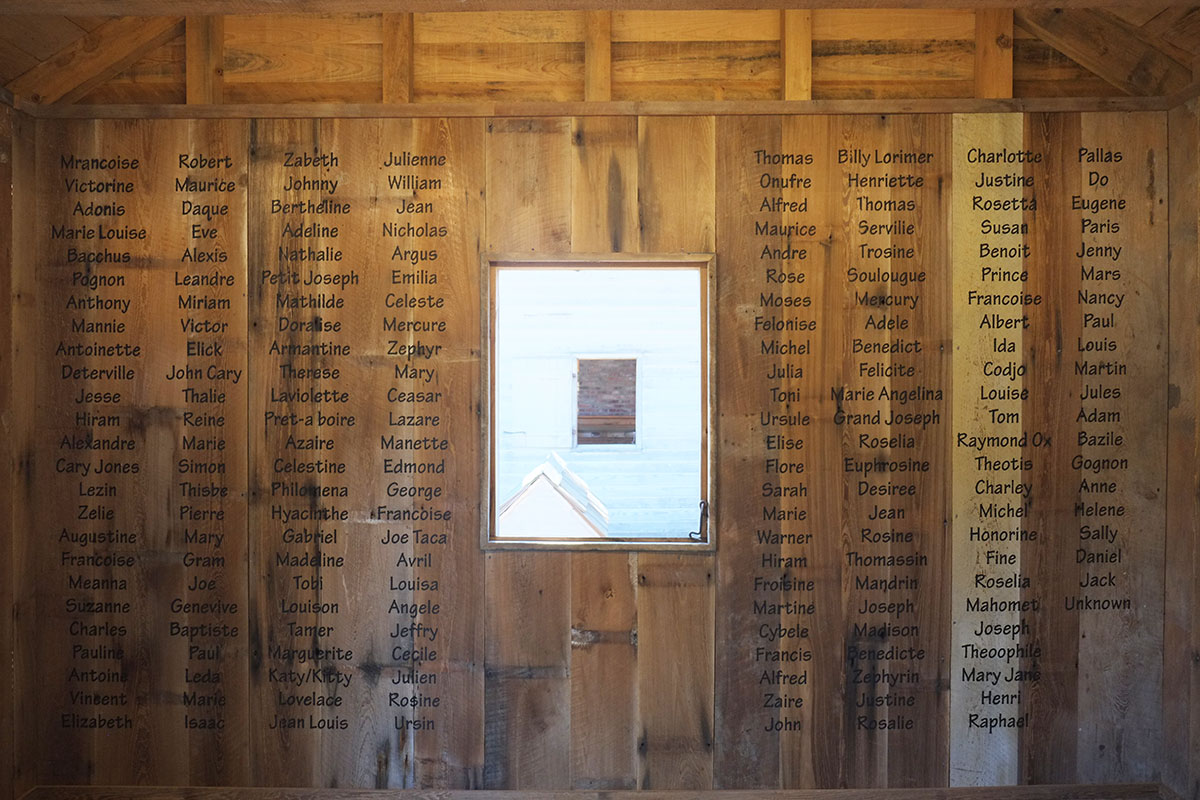 Mrancoise
Victorine
Adonis
Marie Louise
Bacchus
Pognon
Anthony
Mannie
Antoinette
Deterville
Jesse
Hiram
Alexandre
Cary Jones
Lezin
Zelie
Augustine
Francoise
Meanna
Suzanne
Charles
Pauline
Antoine
Vincent
Elizabeth
Robert
Maurice
Daque
Eve
Alexis
Leandre
Miriam
Victor
Elick
John Cary
Thalie
Reine
Marie
Simon
Thisbe
Pierre
Mary
Gram
Joe
Genevive
Baptiste
Paul
Leda
Marie
Isaac
Zabeth
Johnny
Bertheline
Adeline
Nathalie
Petit Joseph
Mathilde
Doralise
Armantine
Therese
Laviolette
Pret-a boire
Azaire
Celestine
Philomena
Hyacinthe
Gabriel
Madeline
Tobi
Louison
Tamer
Marguerite
Katy/Kitty
Lovelace
Jean Louis
Julienne
William
Jean
Nicholas
Argus
Emilia
Celeste
Mercure
Zephyr
Mary
Ceasar
Lazare
Manette
Edmond
George
Francoise
Joe Taca
Avril
Louisa
Angele
Jeffry
Cecile
Julien
Rosine
Ursin
Thomas
Onufre
Alfred
Maurice
Andre
Rose
Moses
Felonise
Michel
Julia
Toni
Ursule
Elise
Flore
Sarah
Marie
Warner
Hiram
Froisine
Martine
Cybele
Francis
Alfred
Zaire
John
Billy Lorimer
Henriette
Thomas
Servile
Trosine
Soulougue
Mercury
Adele
Benedict
Felicite
Marie Angelina
Grand Joseph
Roselia
Euphrosine
Desiree
Jean
Rosine
Thomassin
Mandrin
Joseph
Madison
Benedicte
Zephyrin
Justine
Rosalie
Charlotte
Justine
Rosetta
Susan
Benoit
Prince
Francoise
Albert
Ida
Codjo
Louise
Tom
Raymond Ox
Theotis
Charley
Michel
Honorine
Fine
Roselia
Mahomet
Joseph
Theoophile
Mary Jane
Henri
Raphael
Pallas
Do
Eugene
Paris
Jenny
Mars
Nancy
Paul
Louis
Martin
Jules
Adam
Bazile
Gognon
Anne
Helene
Sally
Daniel
Jack
Unknown